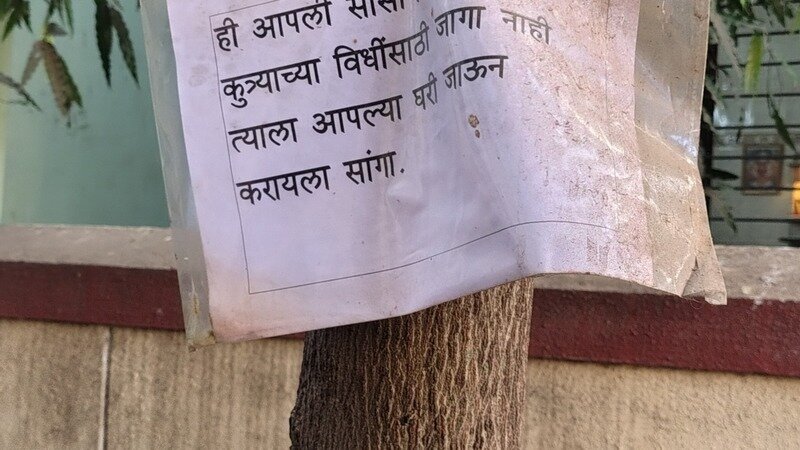 ही आपली
कुत्र्याच्या विधींसाठी जागा नाही
त्याला आपल्या घरी जाऊन
करायला सांगा.